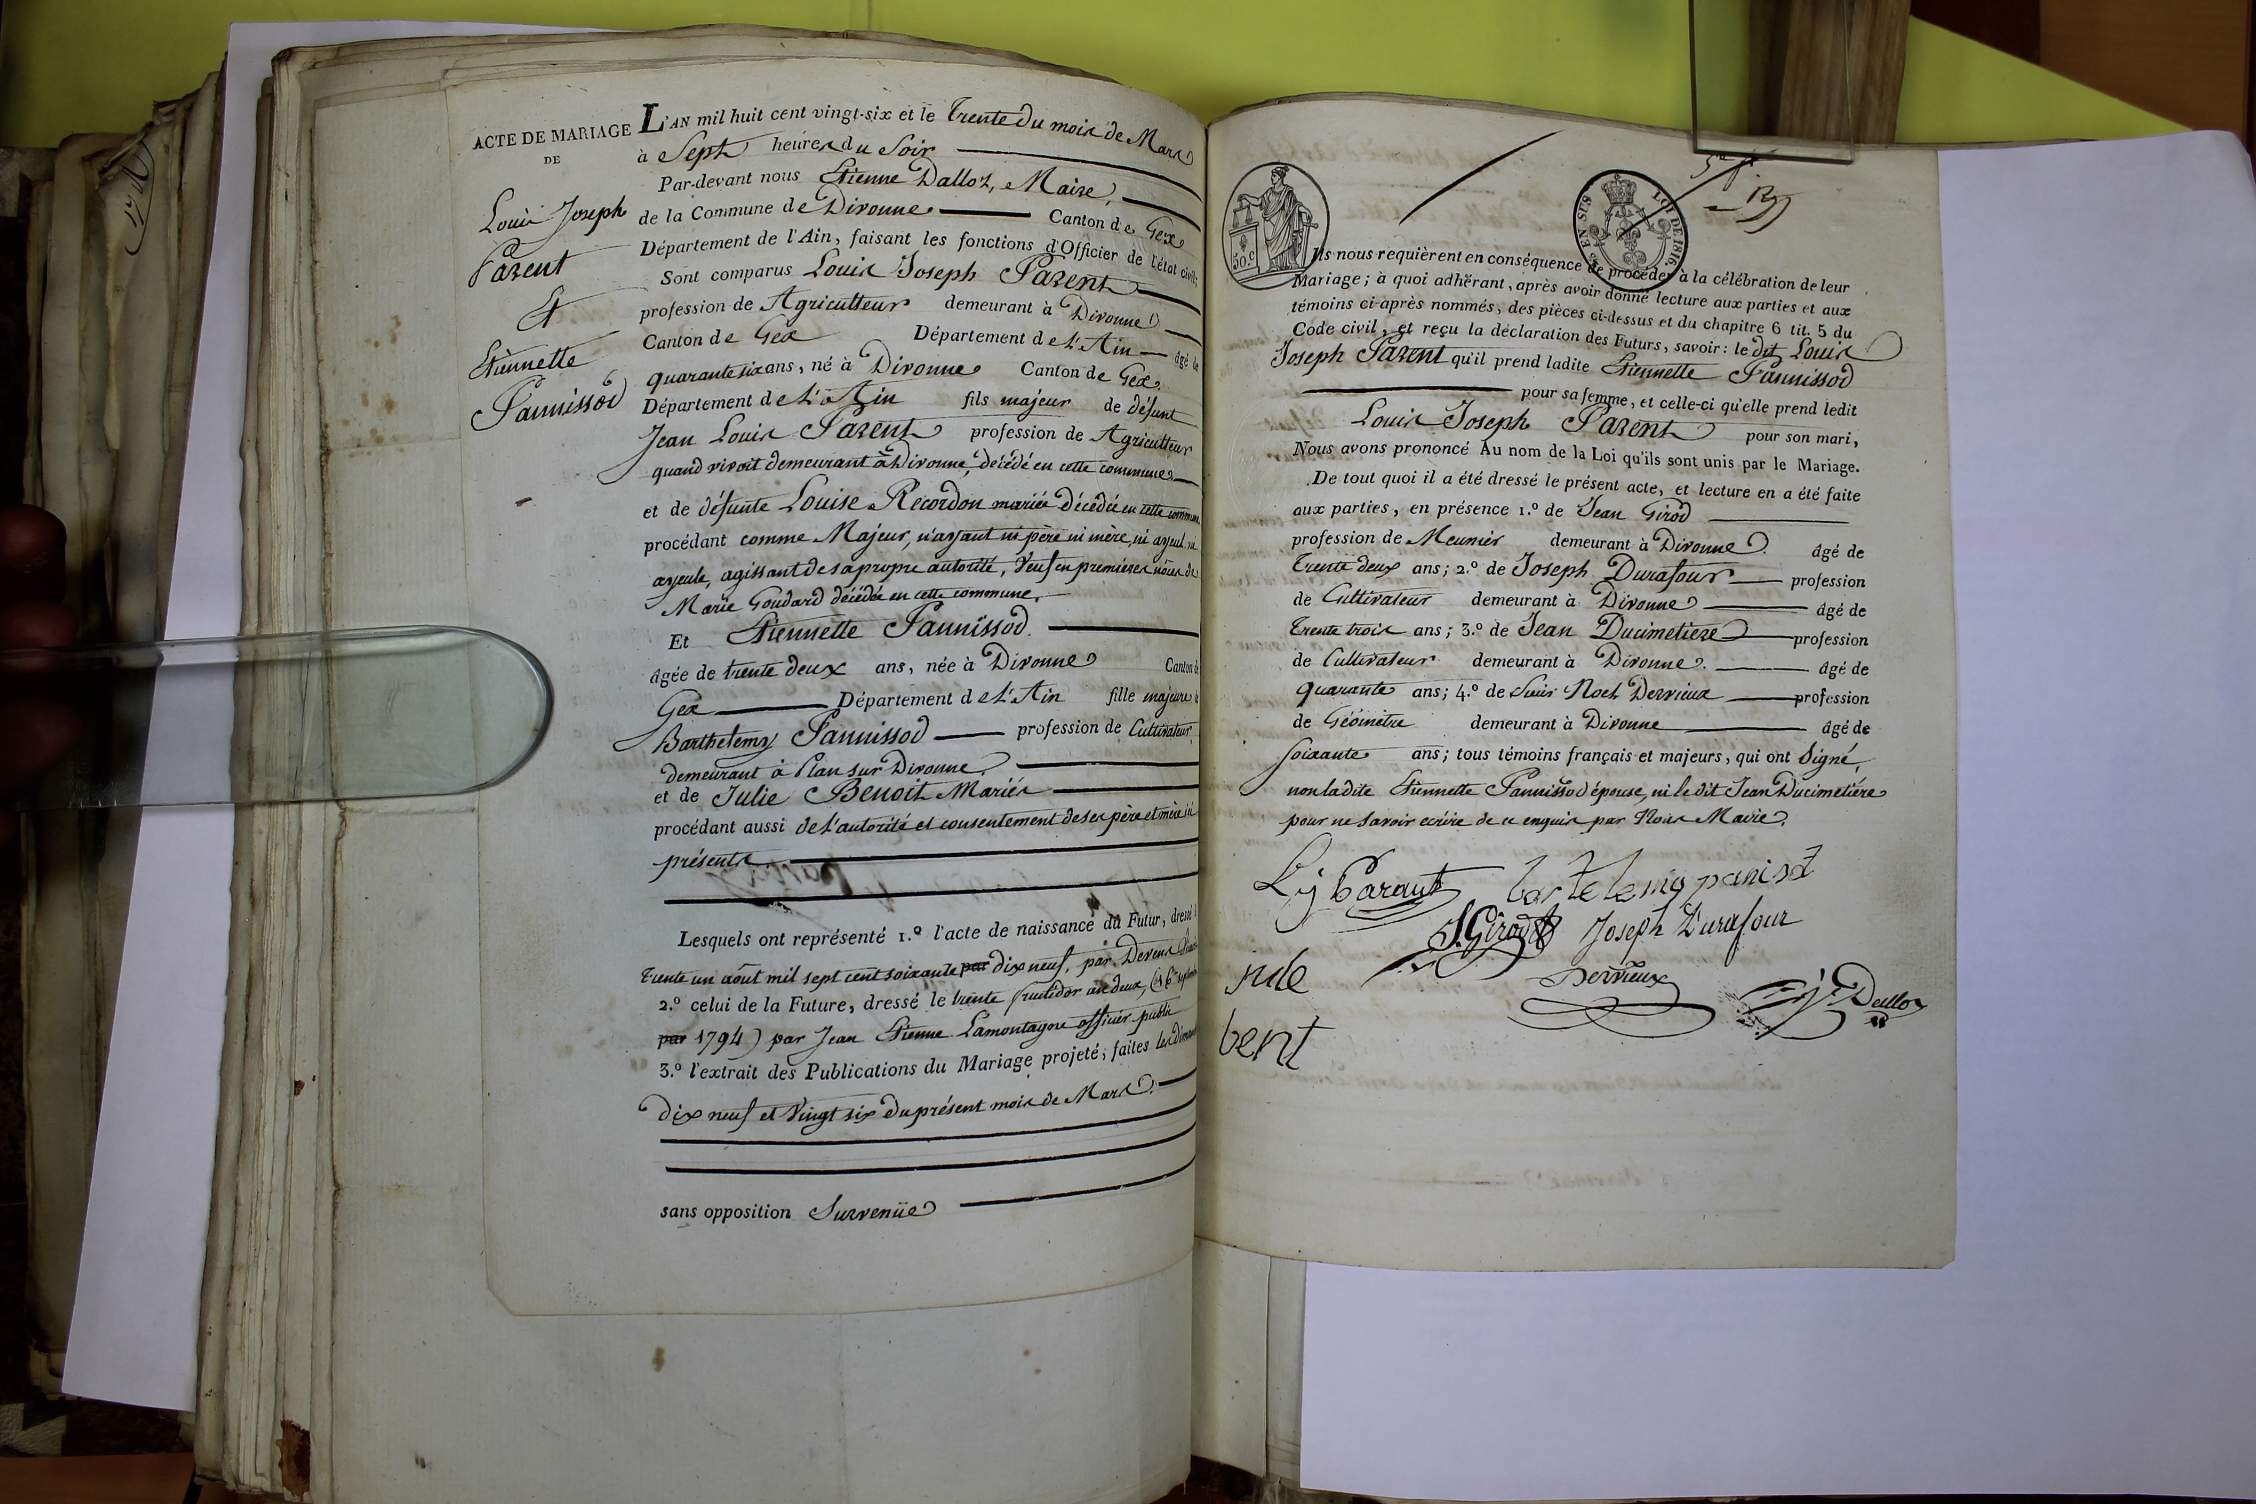 ACTE DE MARIAGE
DE
Louis Joseph
Parent
Et
Etiennette
Pannissod
L'AN mil huit cent vingt-six et le Trente du mois de Mars
à Sept heures du Soir
Par-devant nous Etienne Dalloz, Maire,
de la Commune de Divonne Canton de Gex
Département de l'Ain, faisant les fonctions d'Officier de l'état civil;
Sont comparus Louis Joseph Parent
profession de Agriculteur demeurant à Divonne
Canton de Gex Département de l'Ain âgé de
quarante six ans, né à Divonne Canton de Gex
Département de l'Ain fils majeur de défunt
Jean Louis Parent profession de Agriculteur
quand vivoit demeurant à Divonne, décédé en cette commune
et de défunte Louise Recordon mariée décédée en cette commune
procédant comme Majeur, n'ayant ni père ni mère, ni ayeul ni
ayeule, agissant de sa propre autorité, Veuf en premieres nôces de
Marie Goudard décédée en cette commune.
Et Etiennette Pannissod.
âgée de trente deux ans, née à Divonne Canton de
Gex Département de l'Ain fille majeure de
Barthelemy Pannissod profession de Cultivateur
demeurant à Plan sur Divonne
et de Julie Benoit Mariés
procédant aussi de l'autorité et consentement de ses père et mère ici
présents
Lesquels ont représenté 1.º l'acte de naissance du Futur, dressé le
trente un août mil sept cent soixante par dix neuf, par Devenu
2.º celui de la Future, dressé le trente fructidor an deux, (16 septembre
par 1794) par Jean Etienne Lamontagne officier public
3.º l'extrait des Publications du Mariage projeté, faites les dimanches
dix neuf et Vingt six du présent mois de Mars.
sans opposition Survenüe
50.C
EN SUS
LOI DE 1816.
Ils nous requièrent en conséquence de procéder à la célébration de leur
Mariage; à quoi adhérant, après avoir donné lecture aux parties et aux
témoins ci-après nommés, des pièces ci-dessus et du chapitre 6 tit. 5 du
Code civil, et reçu la déclaration des Futurs, savoir: le dit Louis
Joseph Parent qu'il prend ladite Etiennette Pannissod
pour sa femme, et celle-ci qu'elle prend ledit
Louis Joseph Parent pour son mari,
Nous avons prononcé Au nom de la Loi qu'ils sont unis par le Mariage.
De tout quoi il a été dressé le présent acte, et lecture en a été faite
aux parties, en présence 1.º de Jean Girod
profession de Meunier demeurant à Divonne. âgé de
trente deux ans; 2.º de Joseph Durafour profession
de Cultivateur demeurant à Divonne âgé de
trente trois ans; 3.º de Jean Ducimetiere profession
de Cultivateur demeurant à Divonne. âgé de
quarante ans; 4.º de Louis Noel Derrieux profession
de Géomètre demeurant à Divonne âgé de
soixante ans; tous témoins français et majeurs, qui ont Signé,
non ladite Etiennette Pannissod épouse, ni le dit Jean Ducimetiére
pour ne savoir ecrire de ce enquis par Nous Maire.
Lj Parant bartelemy panisod
J. Girod Joseph Durafour
Derrieux Dalloz